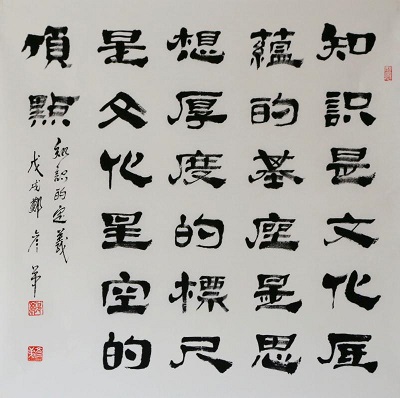 知識是文化底
蘊的基座是思
想厚度的標尺
是文化星空的
頂點
知識的定義
戊戌鄭彥